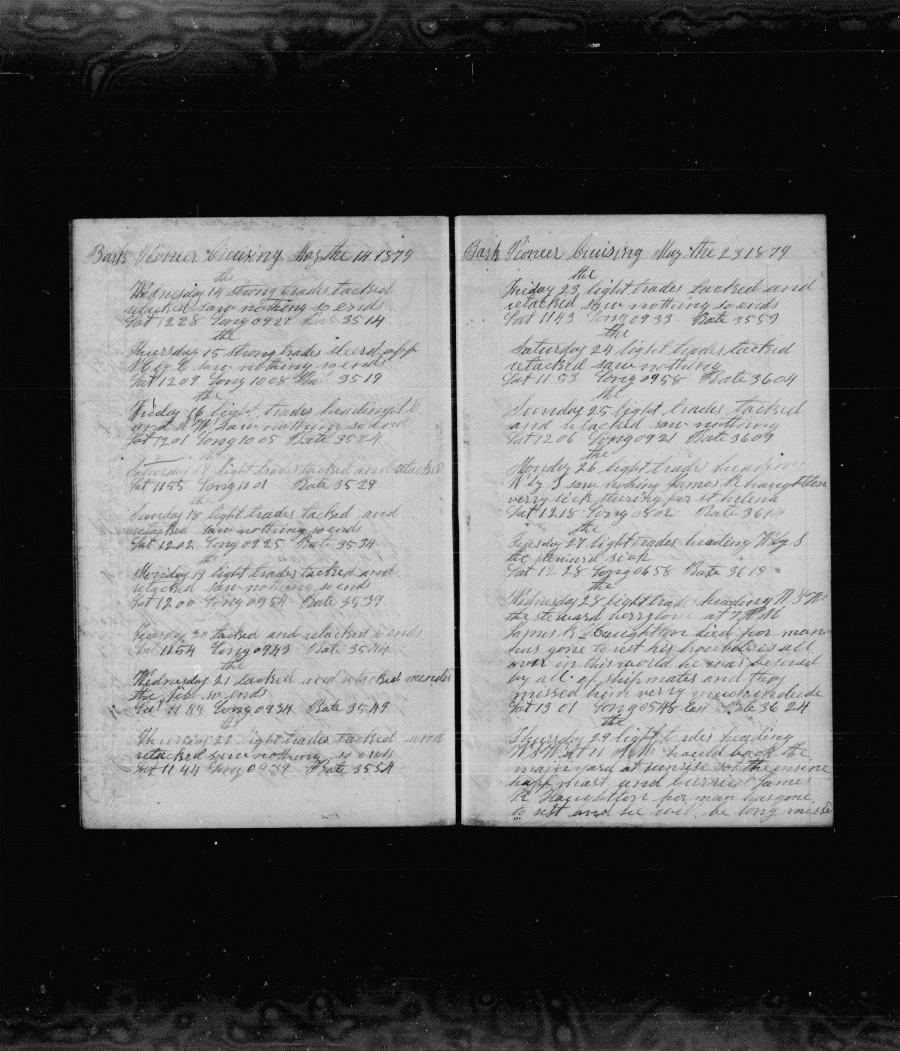 Bark Pioneer Cruising May the 14 1879
the
Wednesday 14 strong trades tacked
retacked saw nothing so ends
Lat 1228 Long 0927 Rate 3514
the
Thursday 15 strong trades steerd off
N by E saw nothing so ends
Lat 1209 Long 1008 Rate 3519
the
Friday 16 light trades heading
and saw nothing so
Lat 1201 Long 1005 Rate 3524
Saturday 17 light trades tacked and retacked
Lat 1155 Long 1001 Rate 3529
the
Sunday 18 light trades tacked and
retacked saw nothing so ends
Lat 1202 Long 0925 Rate 3534
Monday 19 light trades tacked and
retacked saw nothing so ends
Lat 1200 Long 0954 Rate 3539
Tuesday 20 tacked and retacked ends
Lat 1154 Long 0943 Rate 3544
the
Wednesday 21 tacked and retacked
the so ends
Lat 1149 Long 0934 Rate 3549
the
Thursday 22 light trades tacked and
retacked saw nothing so ends
Lat 1144 Long 0939 Rate 3554
Bark Pioneer Cruising May the 23 1879
the
Friday 23 light trades tacked and
retacked saw nothing so ends
Lat 1143 Long 0933 Rate 3559
the
Saturday 24 light trades tacked
retacked saw nothing
Lat 1153 Long 0958 Rate 3604
the
Sunday 25 light trades tacked
and retacked saw nothing
Lat 1206 Long 0921 Rate 3609
the
Monday 26 light trades heading
W by S saw nothing James R haughtton
verry sick steering for st helena
Lat 1218 Long 0802 Rate 3614
the
Tuesday 27 light trades heading W by S
the steward sick
Lat 1228 Long 0658 Rate 3619
the
Wednesday 28 light trades heading
the steward verry low at 7
James R Haughtton died for man
has gone to rest his troubles is all
over in this world he was beloved
by all of shipmates and they
missed him verry much endede
Lat 1301 Long 0548 East Rate 3624
the
Thursday 29 light trades heading
at 11 AM hauld back the
main yard at sunrise set the ensine
half mast and burried James
R Haughtton for man has gone
to rest and he will be long missed